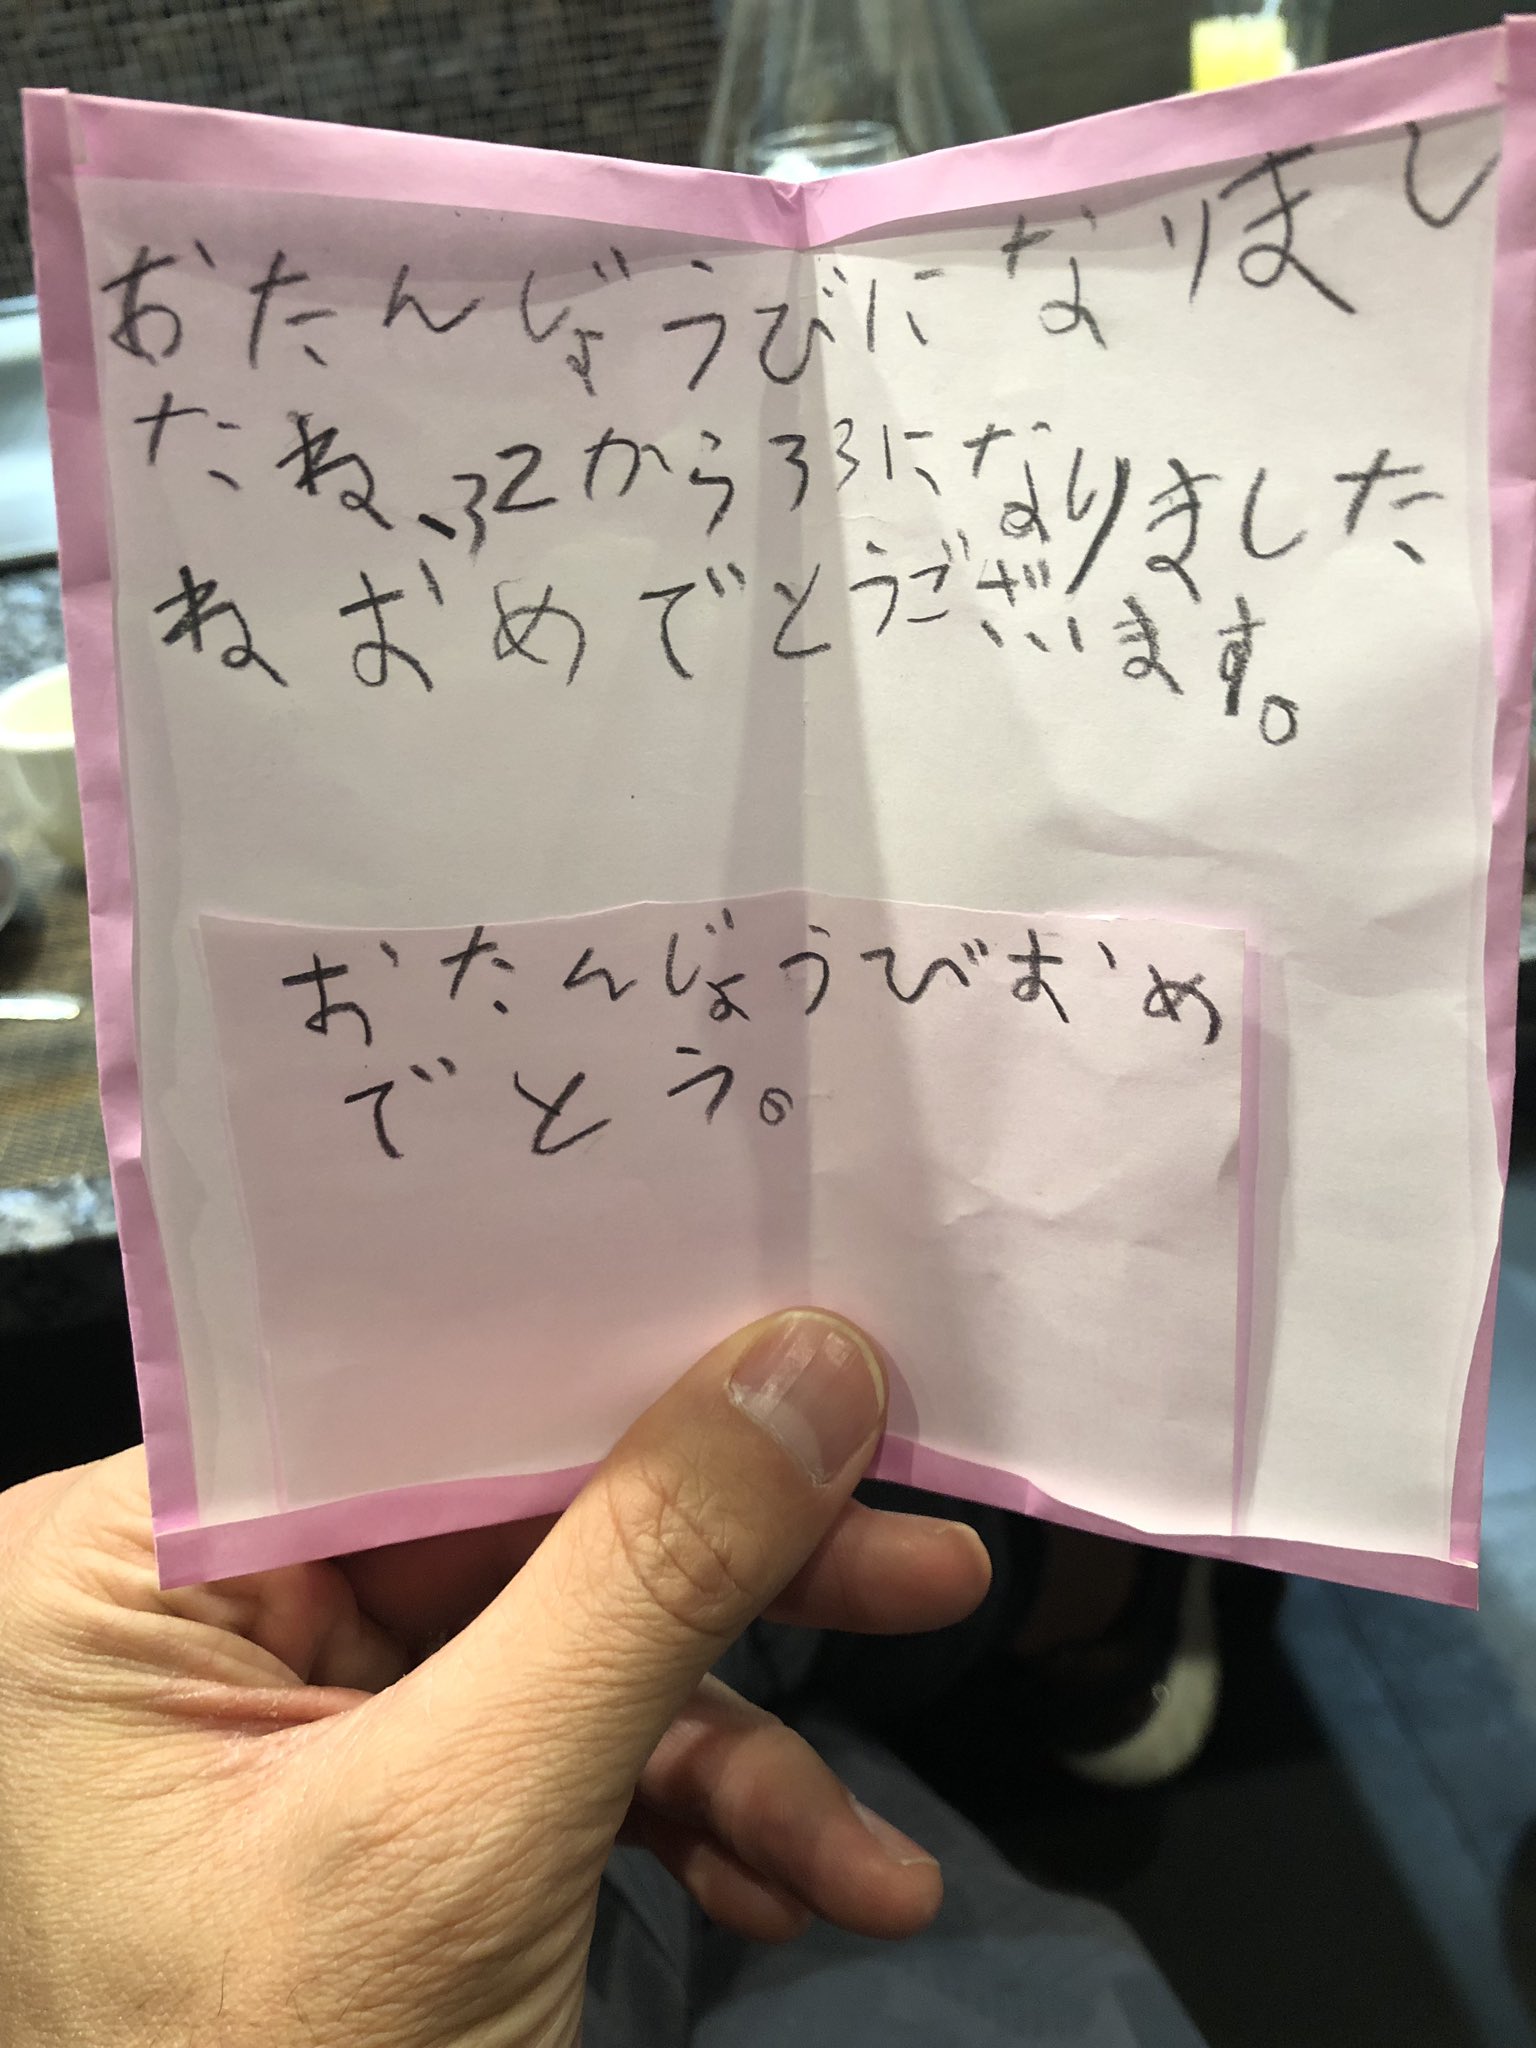 おたんじょうびになりまし
たね、32から33になりました
ねおめでとうございます。
おたんじょうびおめ
でとう。